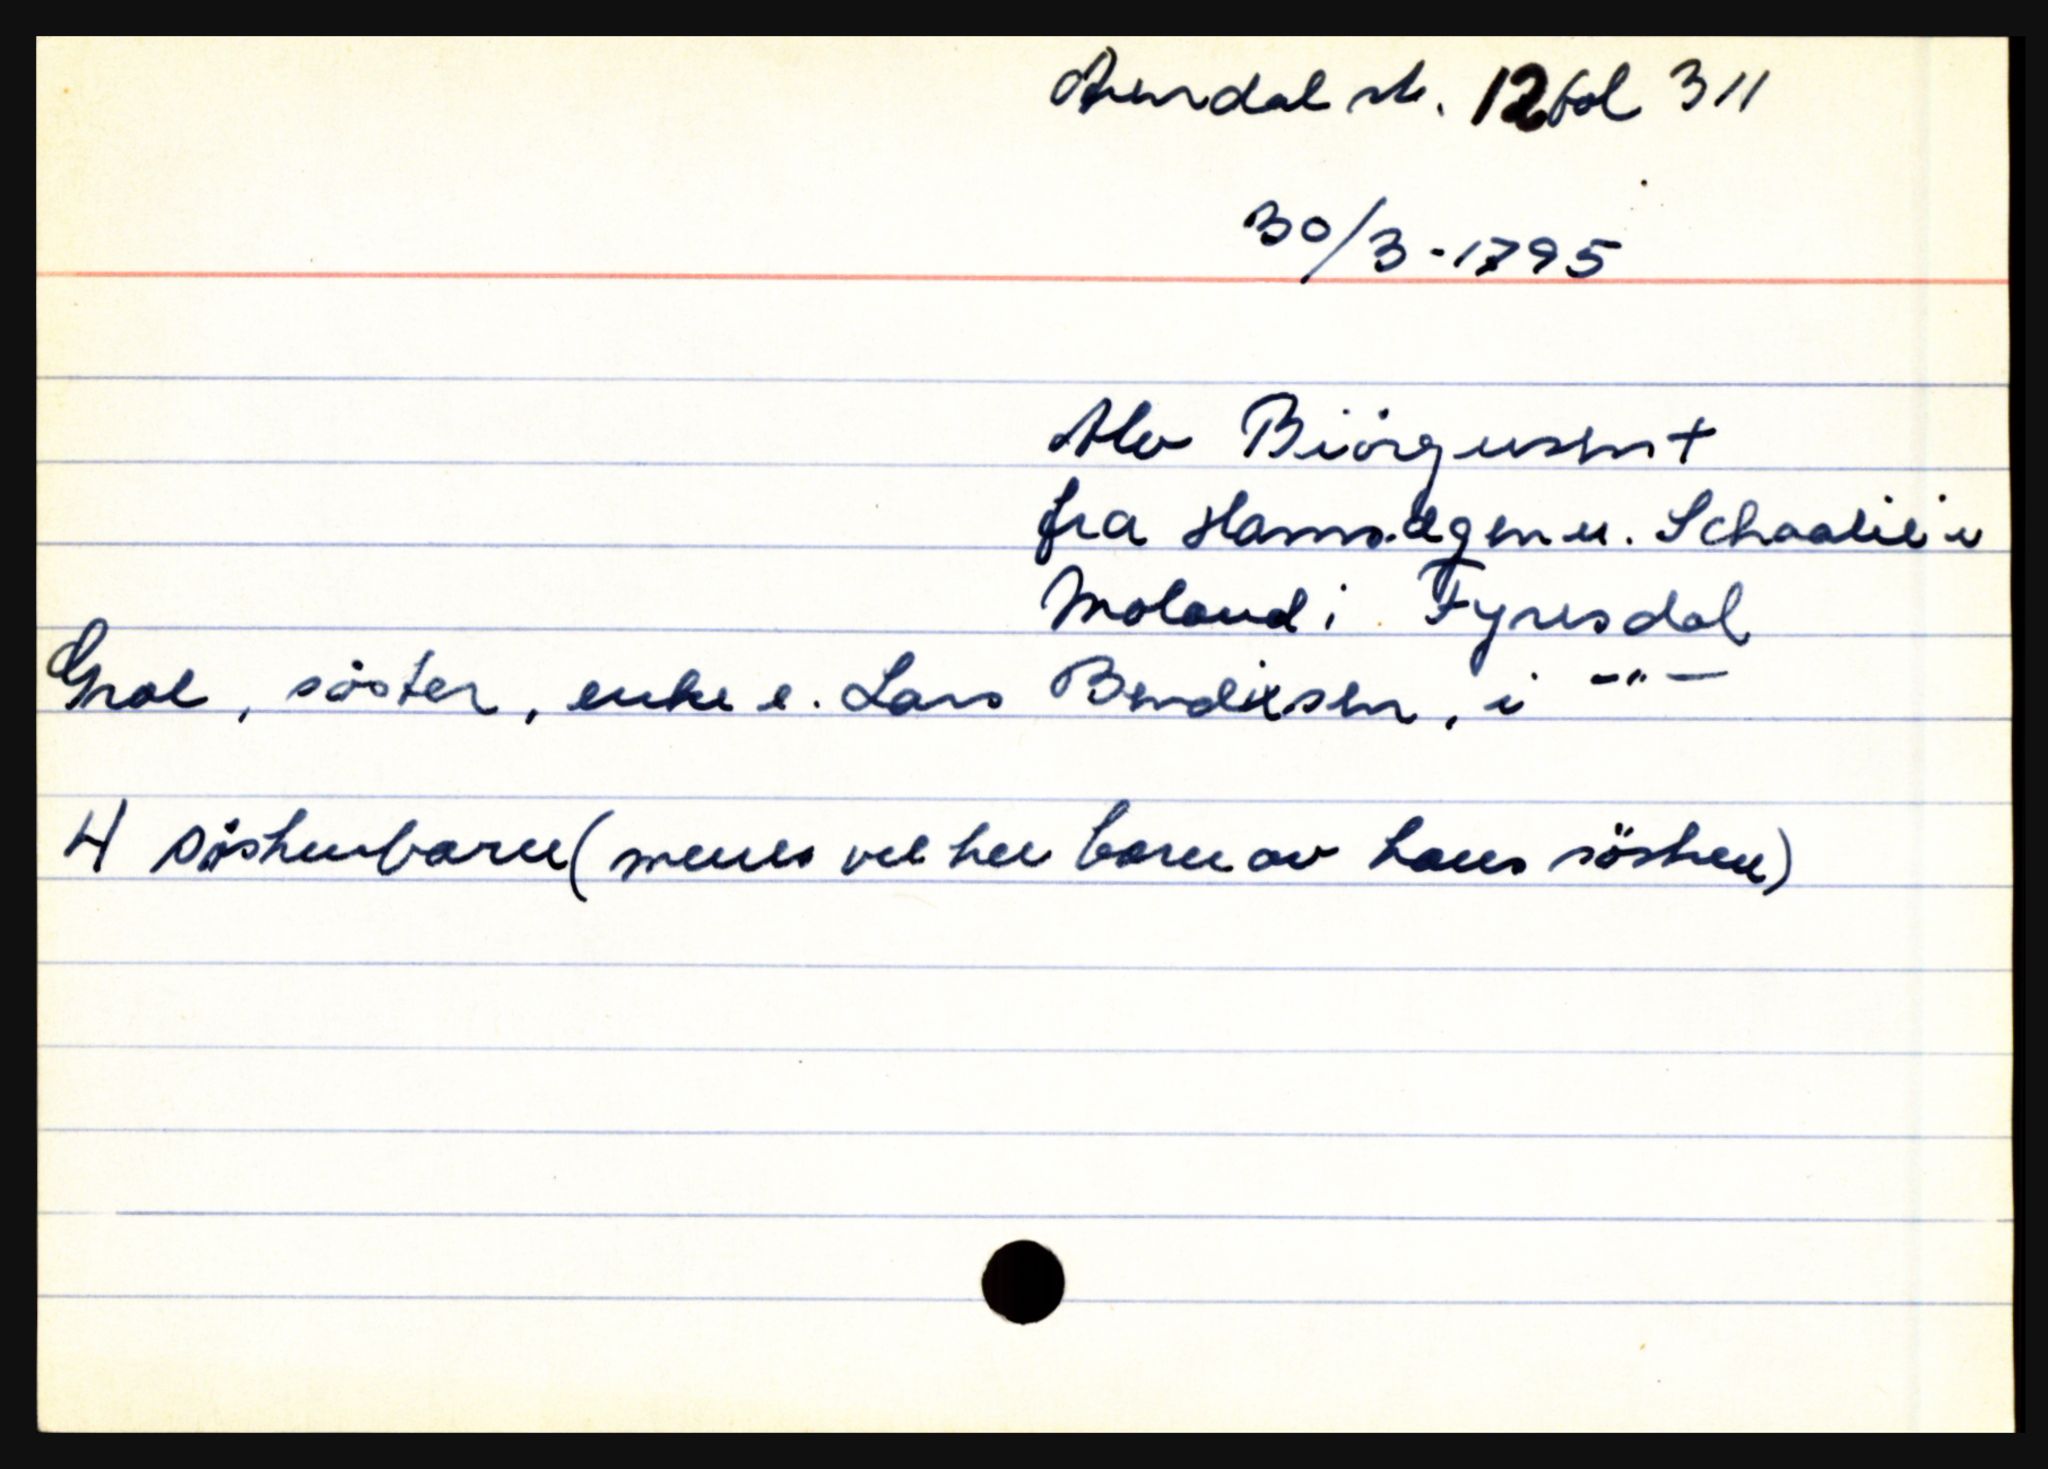 Arendal sk. 12 fol 311
30/3-1795
Alv Biörgusen +
fra Hamregen u. Schaalie i
Moland i Fyresdal
Groe, söster, enke e. Lars Bendixsen, i -"-
4 söskenbarn (menes vel her barn av hans sösken)